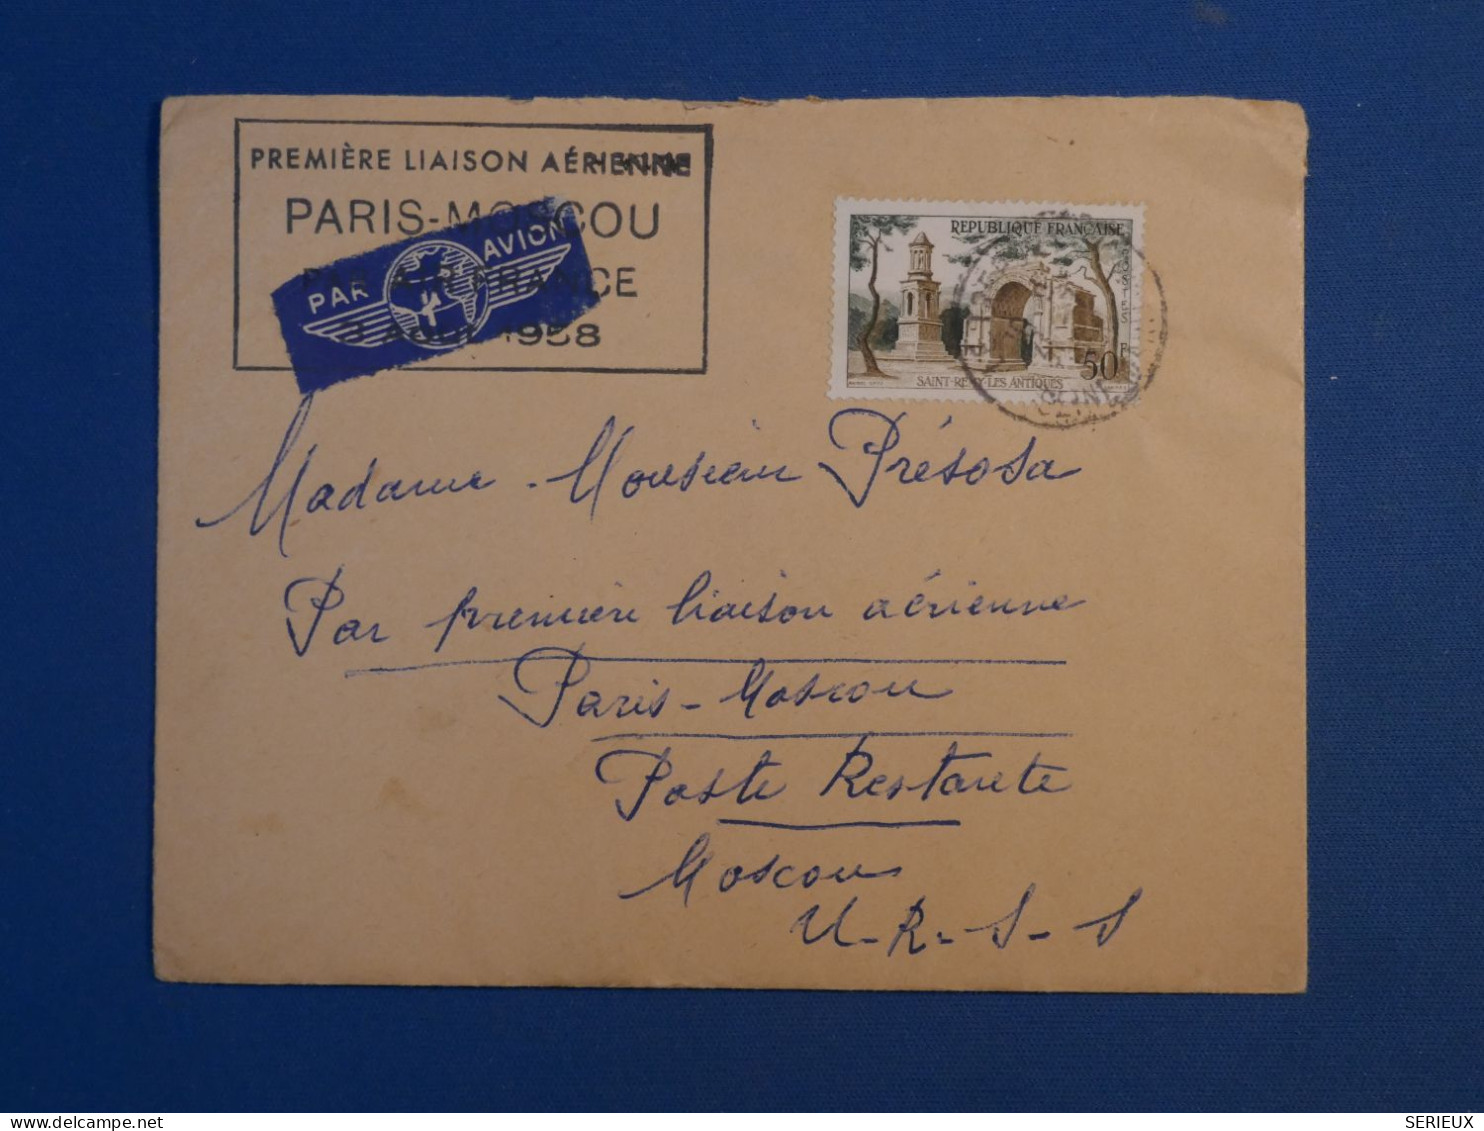 PREMIÈRE LIAISON AÉRIENNE
PARIS-MOSCOU
PAR AIR FRANCE
1958
PAR AVION
REPUBLIQUE FRANÇAISE
POSTES
50F
SAINT-REMY LES ANTIQUES
Madame - Monsieur Présosa
Par première liaison aérienne
Paris-Moscou
Poste Restante
Moscou
U-R-S-S
SERIEUX